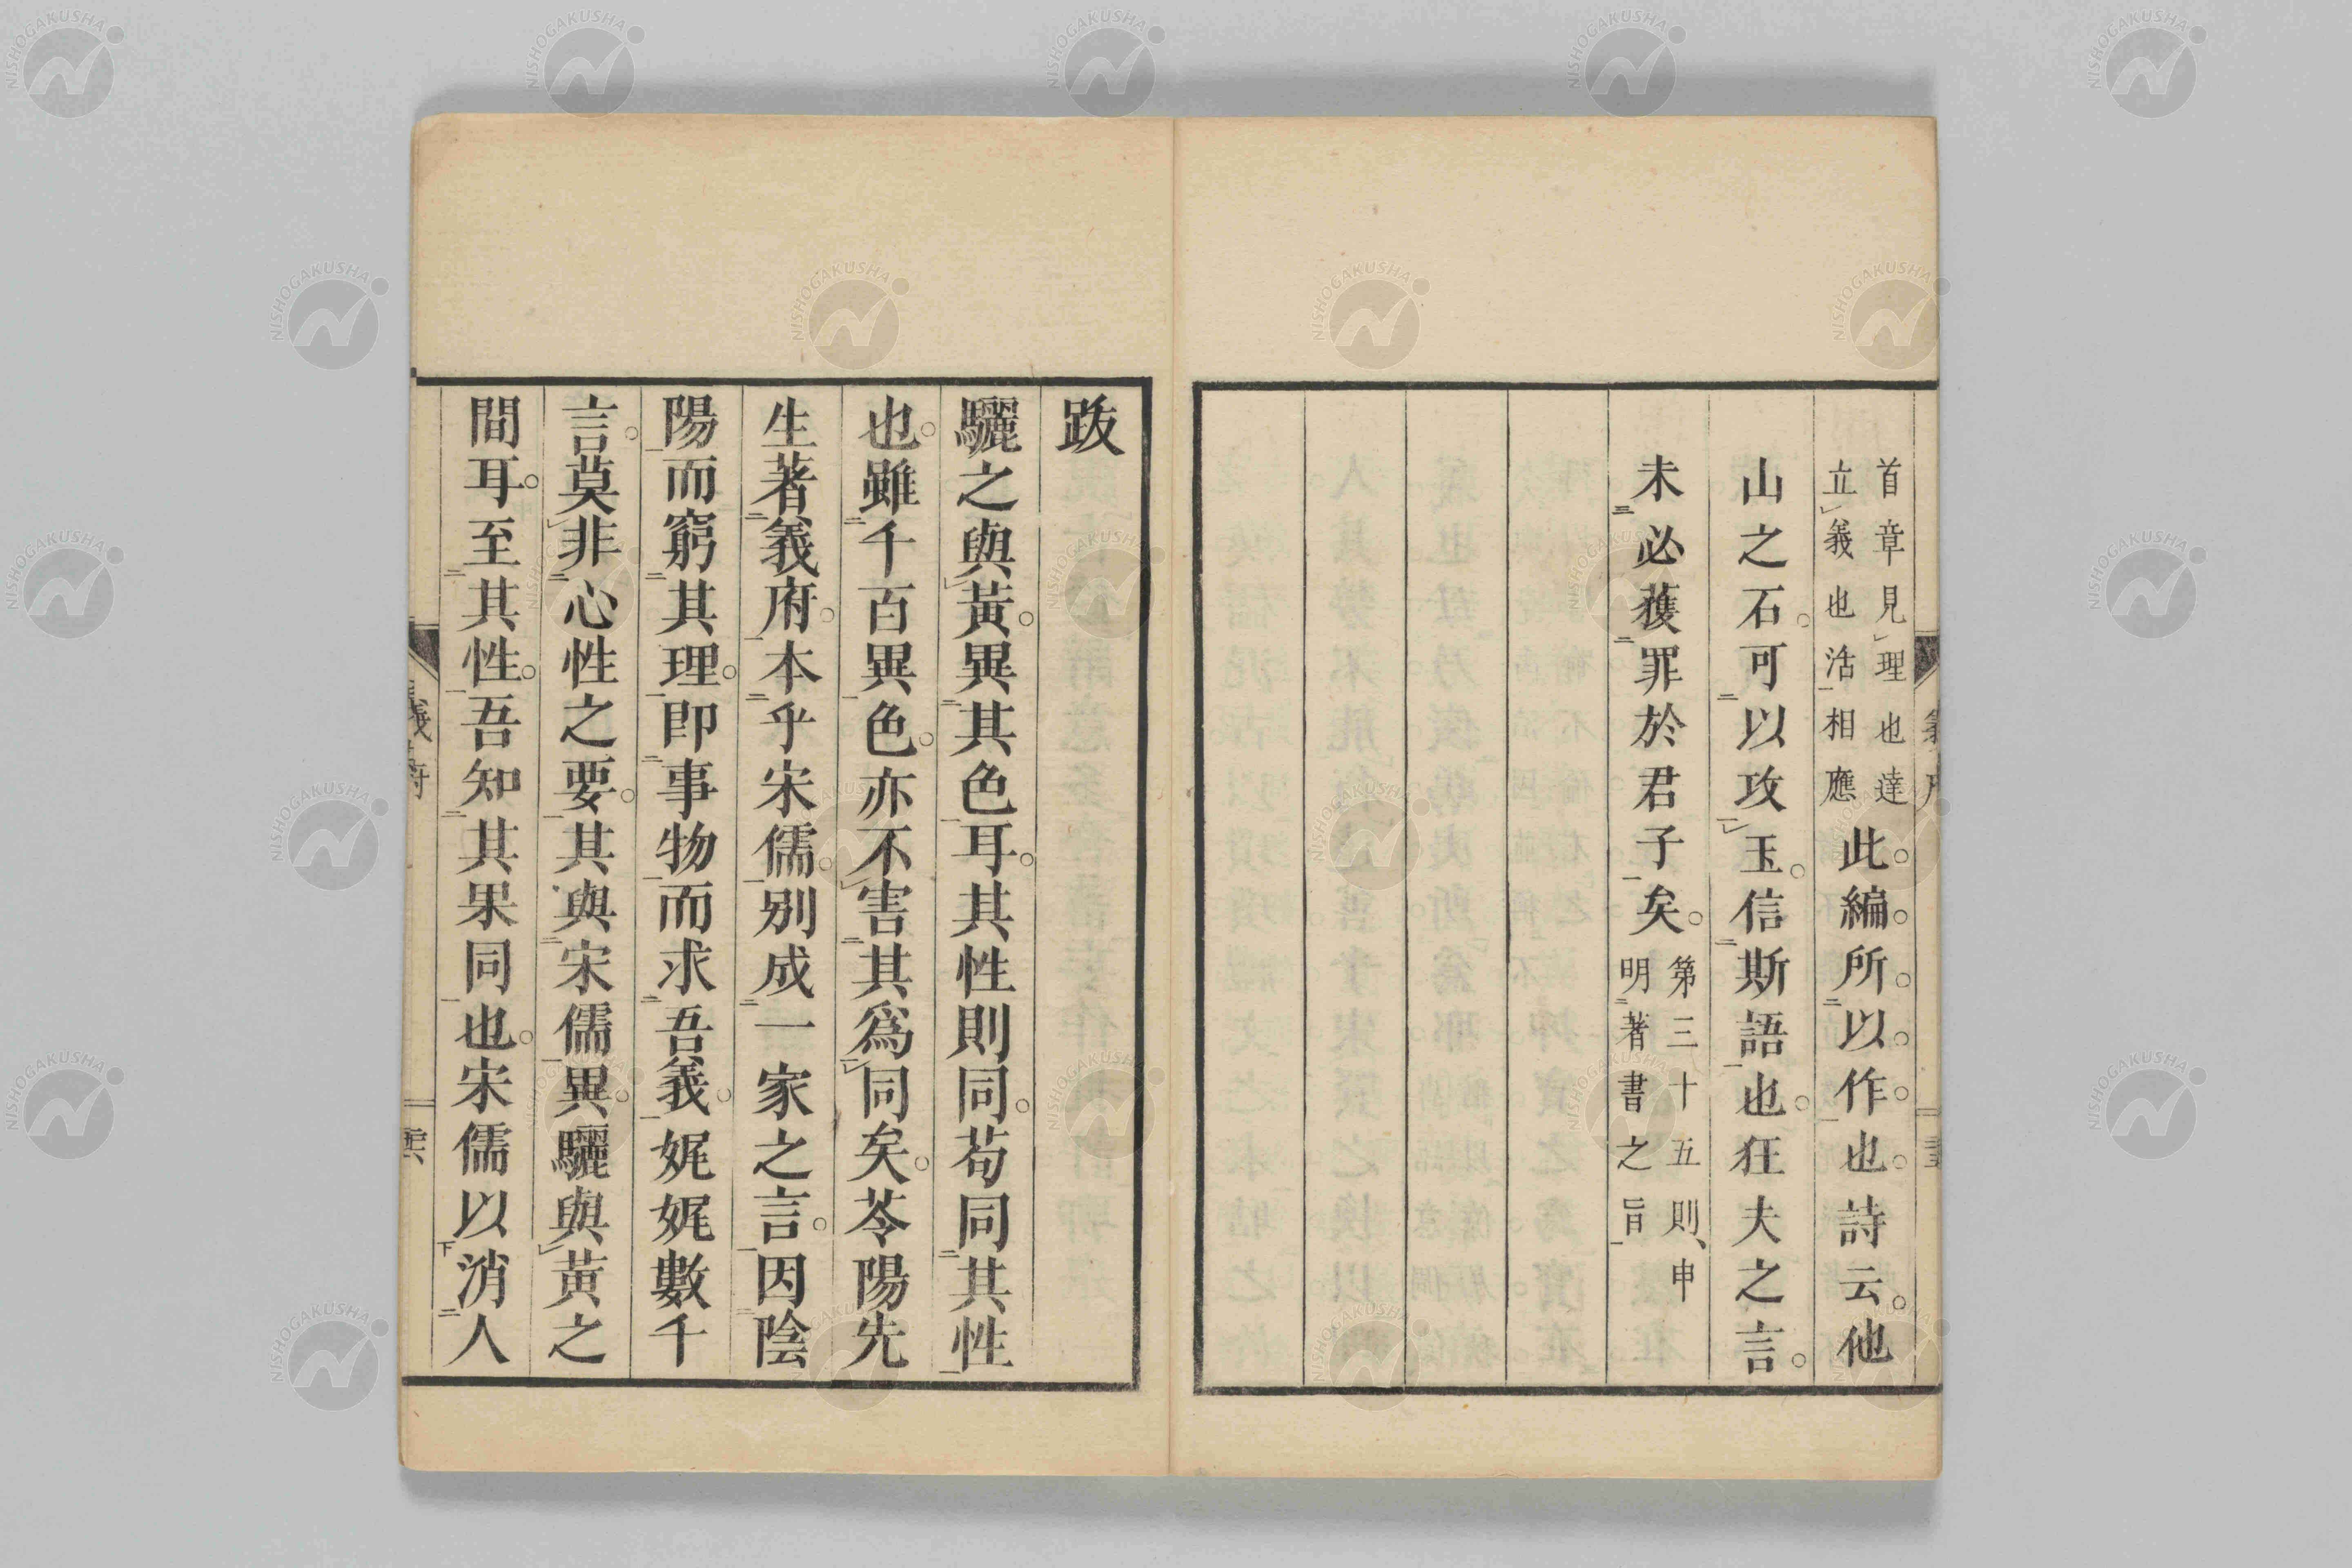 首章見理也達
立義也活相應
此編所以作也詩云他
山之石可以攻玉信斯語也狂夫之言
未必獲罪於君子矣
第三十五則、申
明著書之旨
跋
驪之與黃異其色耳其性則同苟同其性
也雖千百異色亦不害其爲同矣苓陽先
生著義府本乎宋儒別成一家之言因陰
陽而窮其理卽事物而求吾義娓娓數千
言莫非心性之要其與宋儒異驪與黃之
間耳至其性吾知其果同也宋儒以消人
義府
NISHOGAKUSHA